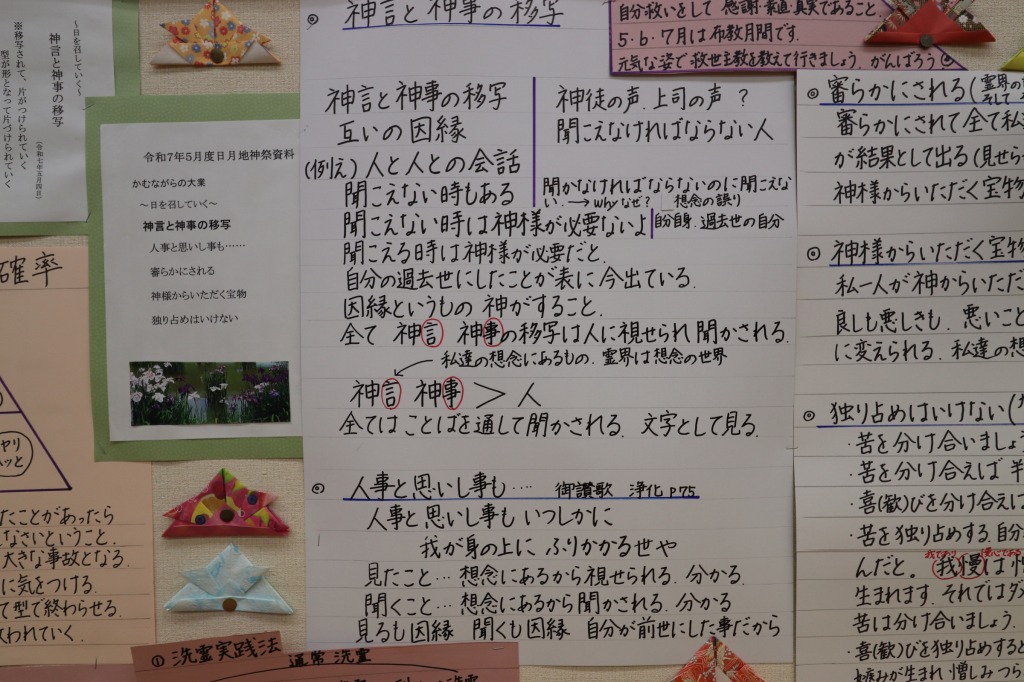 ～日を召していく～
神言と神事の移写
(令和七年五月四日)
※移写されて、片がつけられていく
型が形となって片づけられていく
令和7年5月度日月地神祭資料
かむながらの大業
～日を召していく～
神言と神事の移写
人事と思いし事も……
審らかにされる
神様からいただく宝物
独り占めはいけない
確率
ヤリ
ハッと
たことがあったら
なさいということ.
大きな事故となる.
に気をつける.
て型で終わらせる.
われていく.
◎ 神言と神事の移写
神言と神事の移写
互いの因縁
(例え)人と人との会話
聞こえない時もある
神徒の声.上司の声 ?
聞こえなければならない人
聞かなければならないのに聞こえな
い.→whyなぜ? 想念の誤り
自分自身.過去世の自分
聞こえない時は神様が必要ないよ
聞こえる時は神様が必要だと.
自分の過去世にしたことが表に今出ている.
因縁というもの 神がすること.
全て 神言 神事の移写は人に視せられ聞かされる.
私達の想念にあるもの.霊界は想念の世界
神言 神事 > 人
全てはことばを通して聞かされる. 文字として見る.
◎ 人事と思いし事も‥‥ 御讃歌 浄化 P75
人事と思いし事も いつしかに
我が身の上に ふりかかる世や
見たこと… 想念にあるから視せられる. 分かる.
聞くこと… 想念にあるから聞かされる. 分かる
見るも因縁 聞くも因縁 自分が前世にした事だから
① 洗霊実践法
通常 洗霊
自分救いをして 感謝・素直・真実であること.
5・6・7月は布教月間です.
元気な姿で救世主教を教えて行きましょう. がんばろう
◎ 審らかにされる(霊界の
そして
審らかにされて全て私
が結果として出る(見せら
神様からいただく宝物
◎ 神様からいただく宝物
私一人が神からいただ
良しも悪しきも. 悪いこと
に変えられる. 私達の想
◎ 独り占めはいけない(
・苦を分け合いましょう
・苦を分け合えば 半
・喜(歓)びを分け合えば
・苦を独り占めする. 自分
んだと。 我慢は
生まれます. それではダメ
苦は分け合いましょう.
・喜(歓)びを独り占めすると
嫉みが生まれ 憎しみつら